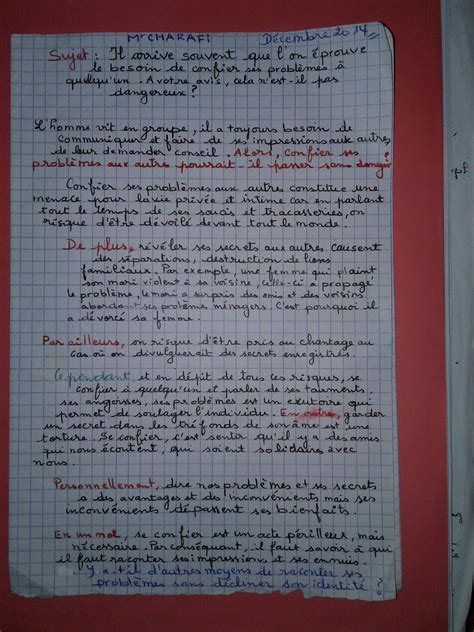 Mr CHARAFI Décembre 2014
Sujet : Il arrive souvent que l'on éprouve
le besoin de confier ses problèmes à
quelqu'un. A votre avis, cela n'est-il pas
dangereux ?
L'homme vit en groupe, il a toujours besoin de
communiquer et faire de ses impressions aux autres
de leur demander conseil. Alors, confier ses
problèmes aux autre pourrait-il passer sans danger ?
Confier ses problèmes aux autres constitue une
menace pour la vie privée et intime car en parlant
tout le temps de ses soucis et tracasseries, on
risque d'être dévoilé devant tout le monde.
De plus, révéler ses secrets aux autres causent
des séparations, destruction de liens
familiaux. Par exemple, une femme qui plaint
son mari violent à sa voisine, celle-ci a propagé
le problème, le mari a surpris des amis et des voisins
abordant ses problème ménagers. C'est pourquoi il
a divorcé sa femme.
Par ailleurs, on risque d'être pris au chantage au
cas où on divulguerait des secrets enregistrés.
Cependant et en dépit de tous ces risques, se
confier à quelqu'un et parler de ses tourments,
ses angoisses, ses problèmes est un exutoire qui
permet de soulager l'individu. En outre, garder
un secret dans les tréfonds de son âme est une
torture. Se confier, c'est sentir qu'il y a des amis
qui nous écoutent, qui soient solidaires avec
nous.
Personnellement, dire nos problèmes et ses secrets
a des avantages et des inconvénients mais ses
inconvénients dépassent ses bienfaits.
En un mot, se confier est un acte périlleux, mais
nécessaire. Par conséquent, il faut savoir à qui
il faut raconter ses impression, et ses ennuies.
Y a-t-il d'autres moyens de raconter ses
problèmes sans décliner son identité ?